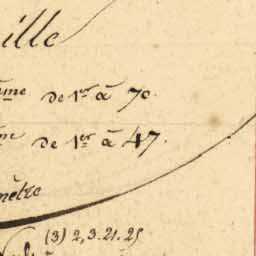 ille
me de 1er à 70.
me de 1er à 47.
mètre
(3) 2, 3. 21. 25